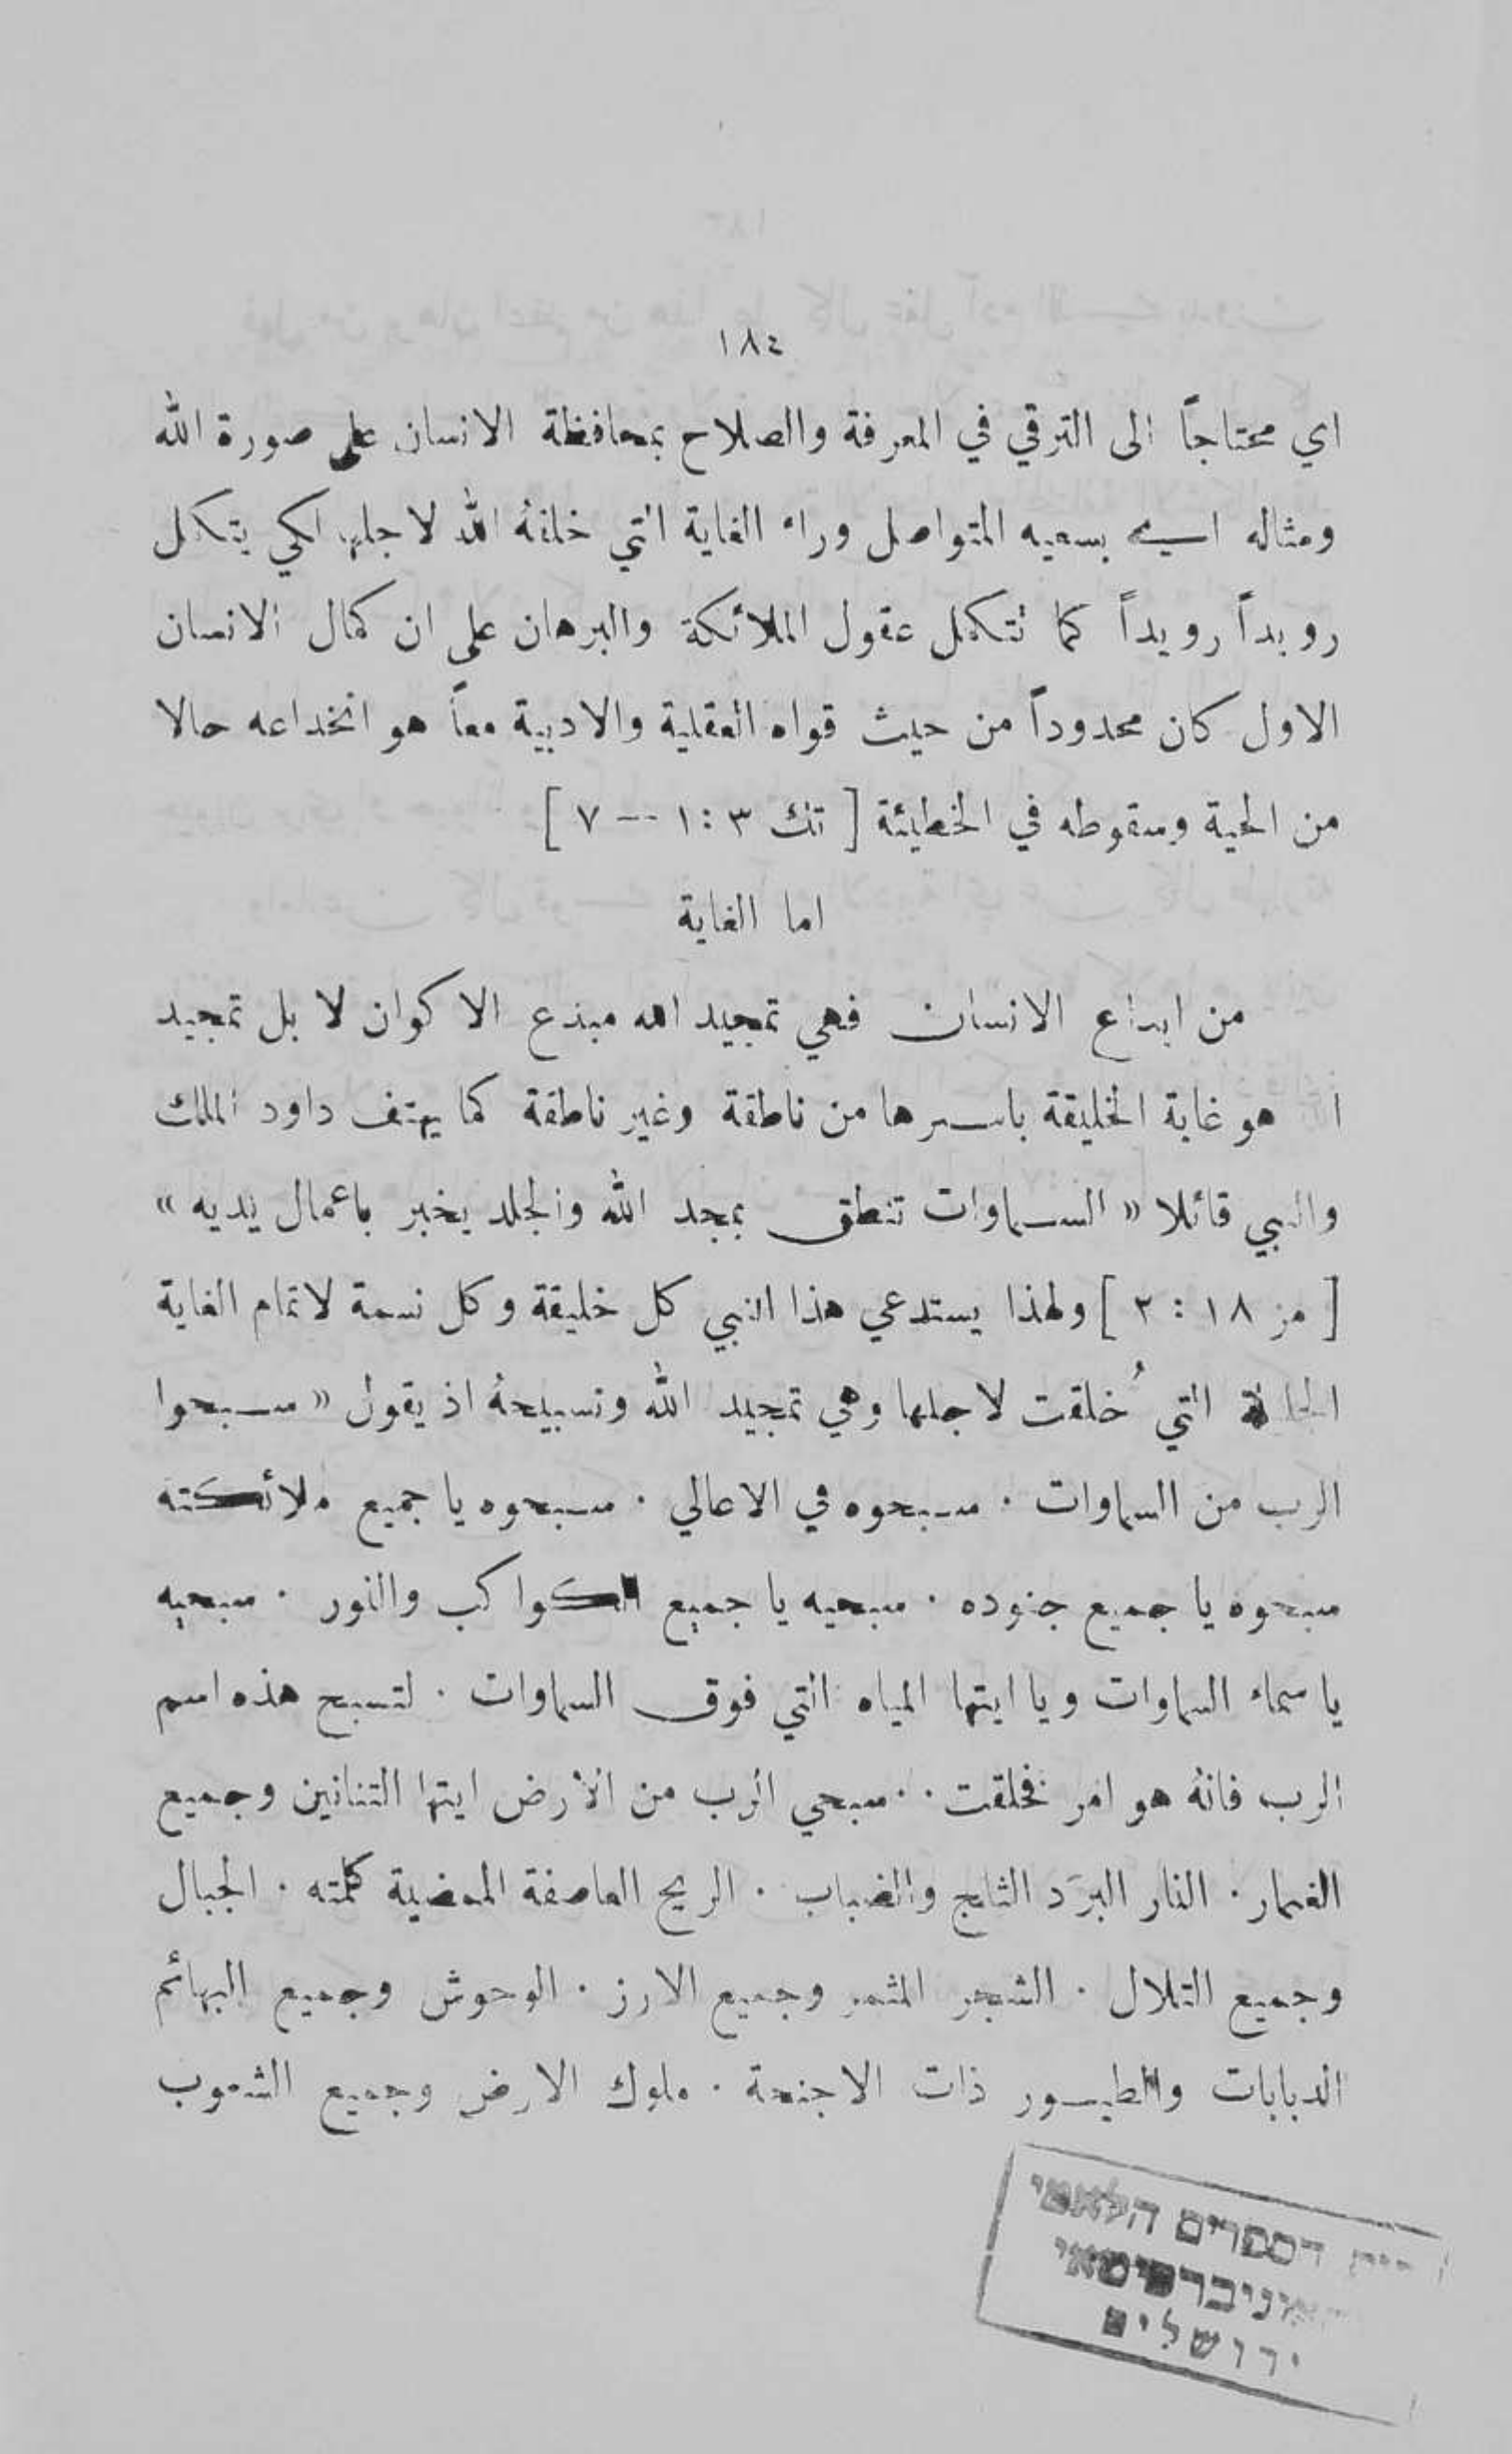 ١٨٤
اي محتاجاً الى الترقي في المعرفة والصلاح بمحافظة الانسان على صورة الله
ومثاله اي بسعيه المتواصل وراء الغاية التي خلقهُ الله لاجلها لكي يتكمل
رويداً رويداً كما تتكمل عقول الملائكة والبرهان على ان كمال الانسان
الاول كان محدوداً من حيث قواه العقلية والادبية معاً هو انخداعه حالا
من الحية وسقوطه في الخطيئة [ تك ٣ : ١ -- ٧ ]
اما الغاية
من ابداع الانسان فهي تمجيد الله مبدع الاكوان لا بل تمجيد
ا هو غاية الخليقة باسرها من ناطقة وغير ناطقة كما يهتف داود الملك
والنبي قائلا « السماوات تنطق بمجد الله والجلد يخبر باعمال يديه »
[ مز ١٨ : ٢ ] ولهذا يستدعي هذا النبي كل خليقة وكل نسمة لاتمام الغاية
الجليلة التي خُلقت لاجلها وهي تمجيد الله وتسبيحهُ اذ يقول « سبحوا
الرب من السماوات ٠ سبحوه في الاعالي ٠ سبحوه يا جميع ملائكته
سبحوه يا جميع جنوده ٠ سبحيه يا جميع الكواكب والنور ٠ سبحيه
يا سماء السماوات ويا ايتها المياه التي فوق السماوات ٠ لتسبح هذه اسم
الرب فانهُ هو امر فخلقت ٠ ٠ سبحي الرب من الأرض ايتها التنانين وجميع
الغمار ٠ النار البرَد الثلج والضباب ٠ الريح العاصفة الممضية كلمته ٠ الجبال
وجميع التلال ٠ الشجر المثمر وجميع الارز ٠ الوحوش وجميع البهائم
الدبابات والطيور ذات الاجنحة ٠ ملوك الارض وجميع الشعوب
הספרים הלאמי
האוניברסיטאי
ירושלים